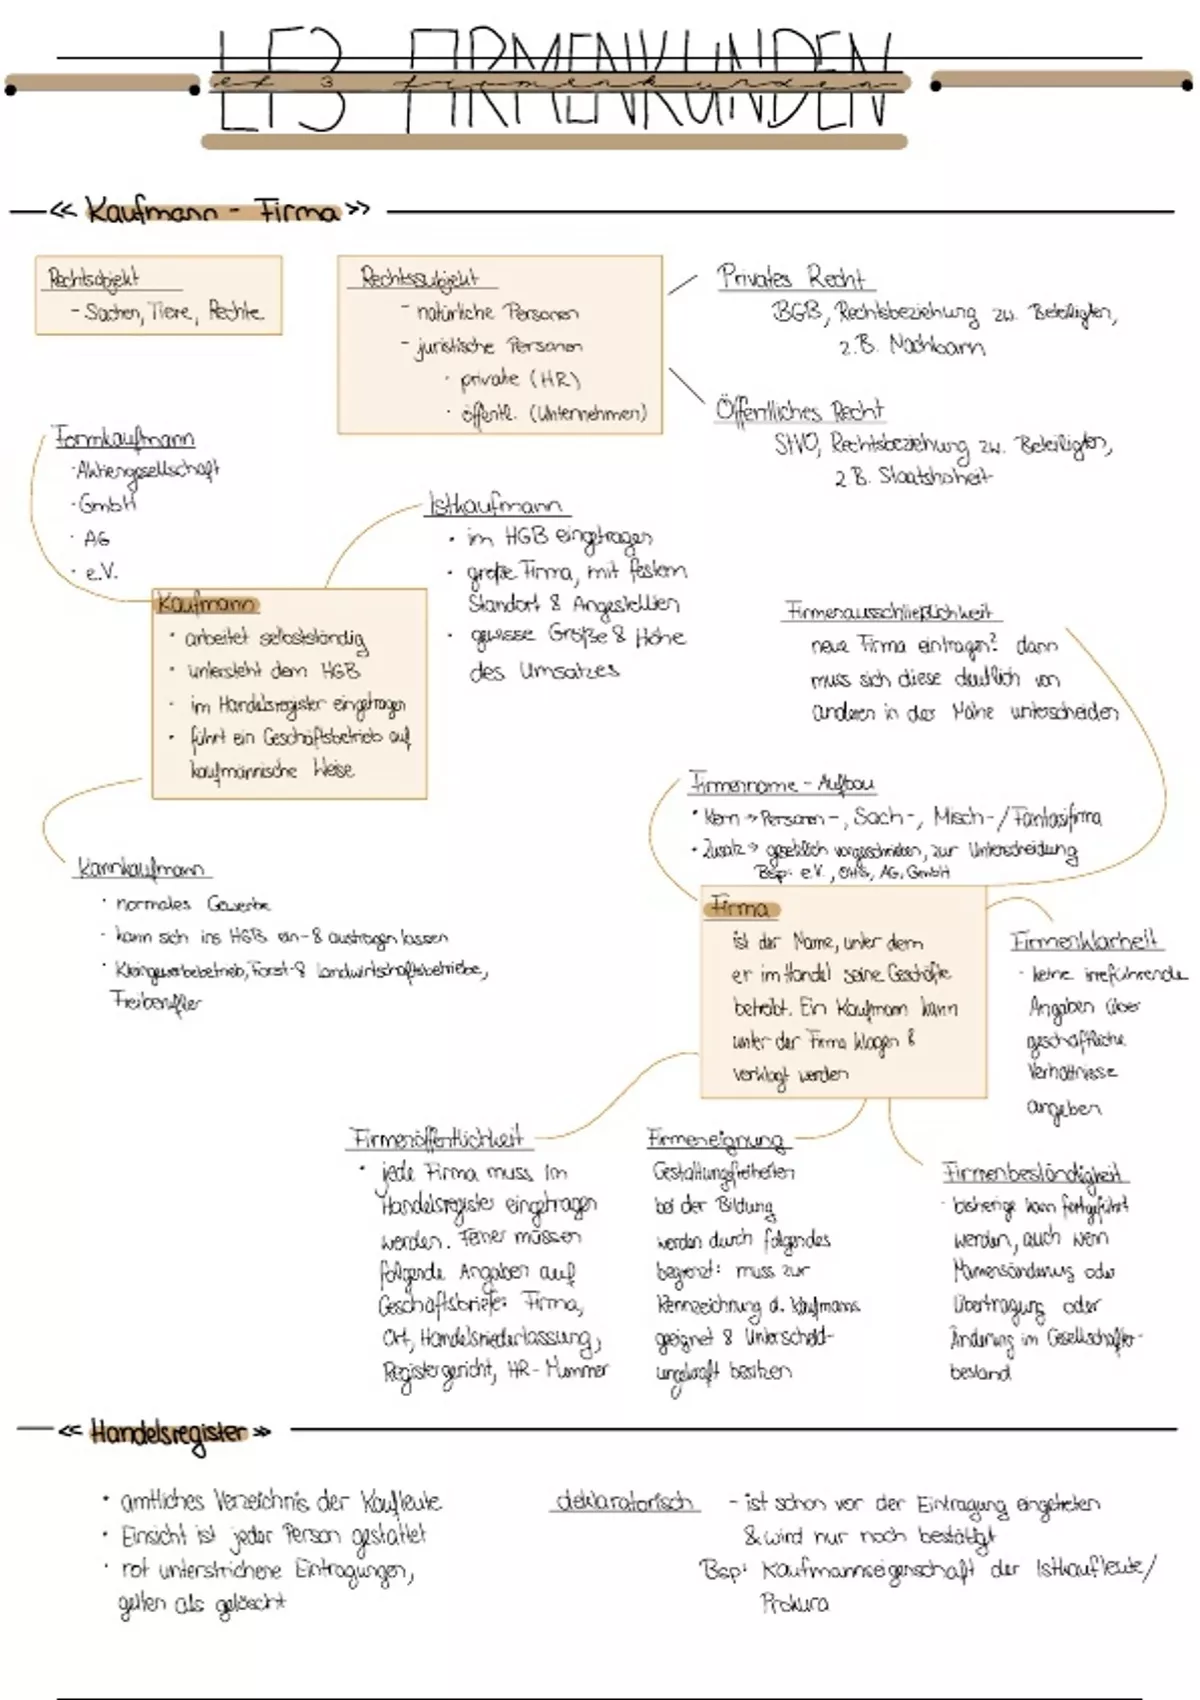 LF3 FIRMENKUNDEN
<< Kaufmann - Firma >>
Rechtsobjekt
- Sachen, Tiere, Rechte
Rechtssubjekt
- natürliche Personen
- juristische Personen
· private (HR)
· öffentl. (Unternehmen)
Privates Recht
BGB, Rechtsbeziehung zw. Beteiligten,
z.B. Nachbarn
Öffentliches Recht
StVO, Rechtsbeziehung zw. Beteiligten,
z.B. Staatshoheit
Formkaufmann
· Aktiengesellschaft
· GmbH
· AG
· e.V.
Istkaufmann
· im HGB eingetragen
· große Firma, mit festem
Standort & Angestellten
· gewisse Größe & Höhe
des Umsatzes
Kaufmann
· arbeitet selbstständig
· untersteht dem HGB
· im Handelsregister eingetragen
· führt ein Geschäftsbetrieb auf
kaufmännische Weise
Kannkaufmann
· normales Gewerbe
· kann sich ins HGB ein- & austragen lassen
· Kleingewerbebetrieb, Forst- & landwirtschaftsbetriebe,
Freiberufler
Firmenausschließlichkeit
neue Firma eintragen? dann
muss sich diese deutlich von
anderen in der Nähe unterscheiden
Firmenname - Aufbau
· Kern → Personen-, Sach-, Misch-/Fantasifirma
· Zusatz → gesetzlich vorgeschrieben, zur Unterscheidung
Bsp: e.V., OHG, AG, GmbH
Firma
ist der Name, unter dem
er im Handel seine Geschäfte
betreibt. Ein Kaufmann kann
unter der Firma klagen &
verklagt werden
Firmenklarheit
· keine irreführende
Angaben über
geschäftliche
Verhältnisse
angeben
Firmenöffentlichkeit
· jede Firma muss im
Handelsregister eingetragen
werden. Ferner müssen
folgende Angaben auf
Geschäftsbriefe: Firma,
Ort, Handelsniederlassung,
Registergericht, HR-Nummer
Firmeneignung
Gestaltungsfreiheiten
bei der Bildung
werden durch folgendes
begrenzt: muss zur
Kennzeichnung d. Kaufmanns
geeignet & Unterscheid-
ungskraft besitzen
Firmenbeständigkeit
· bisherige kann fortgeführt
werden, auch wenn
Namensänderung oder
Übertragung oder
Änderung im Gesellschafter-
bestand
<< Handelsregister >>
· amtliches Verzeichnis der Kaufleute
· Einsicht ist jeder Person gestattet
· rot unterstrichene Eintragungen,
gelten als gelöscht
deklaratorisch
- ist schon vor der Eintragung eingetreten
& wird nur noch bestätigt
Bsp: Kaufmannseigenschaft der Istkaufleute/
Prokura